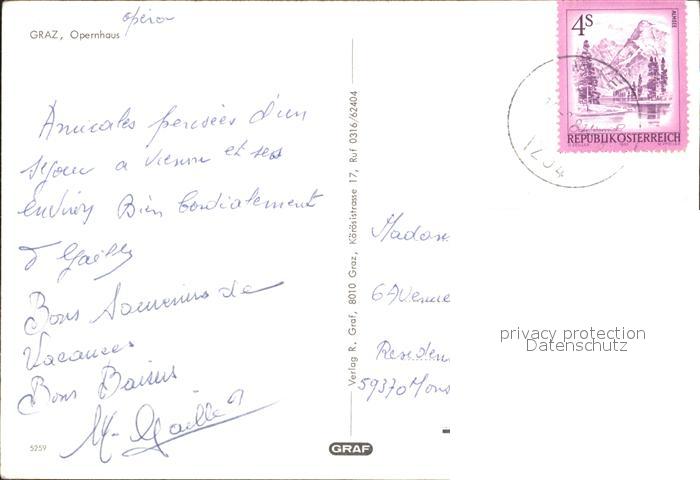 opéra
GRAZ, Opernhaus
Amicales pensées d'un
séjour a Vienne et ses
environs Bien Cordialement
Bons Souvenirs de
Vacances
Bons Baisers
5259
GRAF
Verlag R. Graf, 8010 Graz, Körösistrasse 17, Ruf 0316/62404
4S
ALMSEE
REPUBLIK ÖSTERREICH
Madame
6 Avenue
Residen
59370 Mons
privacy protection
Datenschutz